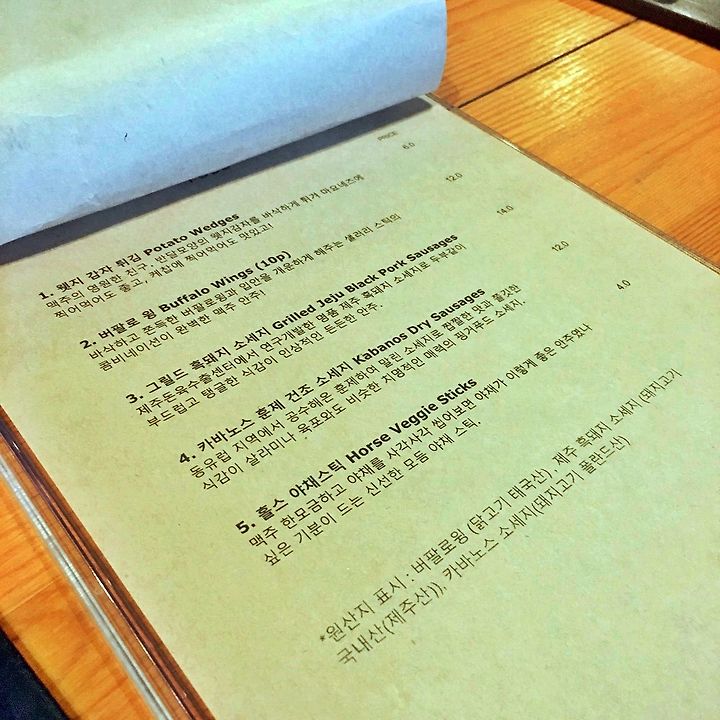 PRICE
1. 웻지 감자 튀김 Potato Wedges 6.0
맥주의 영원한 친구, 반달모양의 웻지감자를 바삭하게 튀겨 마요네즈에
찍어먹어도 좋고, 케찹에 찍어먹어도 맛있고!
2. 버팔로 윙 Buffalo Wings (10p) 12.0
바삭하고 쫀득한 버팔로윙과 입안을 개운하게 해주는 샐러리 스틱의
콤비네이션이 완벽한 맥주 안주!
3. 그릴드 흑돼지 소세지 Grilled Jeju Black Pork Sausages 14.0
제주돈육수출센터에서 연구개발한 명품 제주 흑돼지 소세지로 두부같이
부드럽고 탱글한 식감이 인상적인 든든한 안주.
4. 카바노스 훈제 건조 소세지 Kabanos Dry Sausages 12.0
동유럽 지역에서 공수해온 훈제하여 말린 소세지로 짭짤한 맛과 쫄깃한
식감이 살라미나 육포와도 비슷한 치명적인 매력의 핑거푸드 소세지.
5. 홀스 야채스틱 Horse Veggie Sticks 4.0
맥주 한모금하고 야채를 사각사각 씹어보면 야채가 이렇게 좋은 안주였나
싶은 기분이 드는 신선한 모듬 야채 스틱.
*원산지 표시 : 버팔로윙 (닭고기 태국산), 제주 흑돼지 소세지 (돼지고기
국내산(제주산)), 카바노스 소세지(돼지고기 폴란드산)